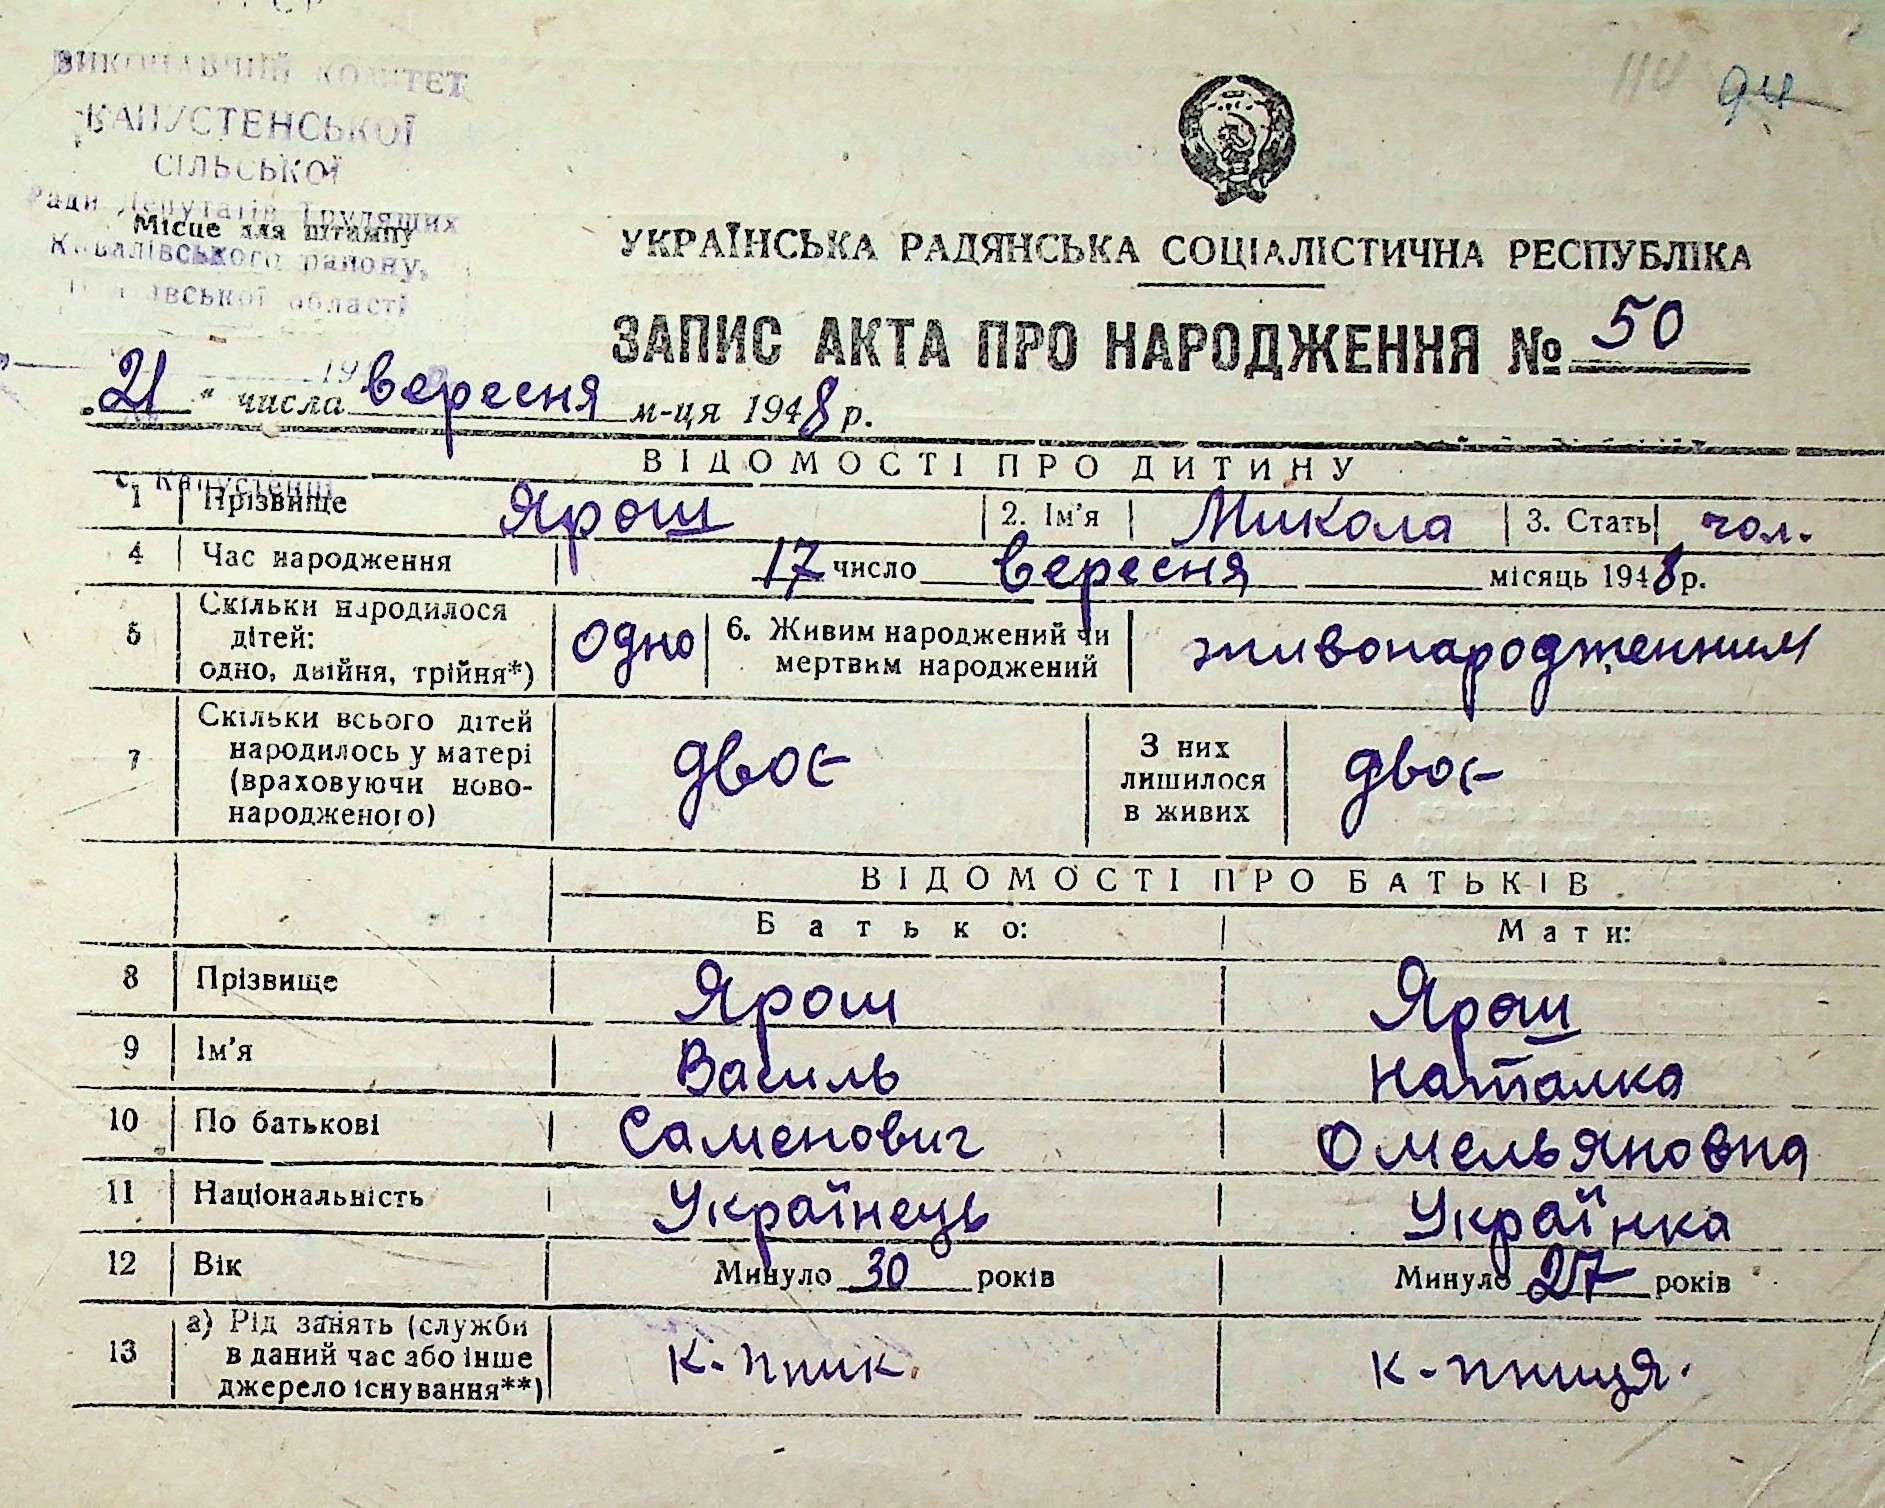 114 94
ВИКОНАВЧИЙ КОМІТЕТ
КАПУСТЕНСЬКОЇ
СІЛЬСЬКОЇ
Ради Депутатів Трудящих
Місце для штампу
району,
області
УКРАЇНСЬКА РАДЯНСЬКА СОЦІАЛІСТИЧНА РЕСПУБЛІКА
ЗАПИС АКТА ПРО НАРОДЖЕННЯ № 50
19
„21“ числа вересня м-ця 1948 р.
ВІДОМОСТІ ПРО ДИТИНУ
с. Капустенці
1 Прізвище Ярош 2. Ім'я Микола 3. Стать чол.
4 Час народження 17 число вересня місяць 1948 р.
5 Скільки народилося дітей: одно, двійня, трійня*) одно 6. Живим народжений чи мертвим народжений живонародженним
7 Скільки всього дітей народилось у матері (враховуючи ново-народженого) двоє З них лишилося в живих двоє
ВІДОМОСТІ ПРО БАТЬКІВ
Батько: Мати:
8 Прізвище Ярош Ярош
9 Ім'я Василь Наталка
10 По батькові Саменович Омельяновна
11 Національність Українець Українка
12 Вік Минуло 30 років Минуло 27 років
13 а) Рід занять (служби в даний час або інше джерело існування**) к-пник. к-пниця.